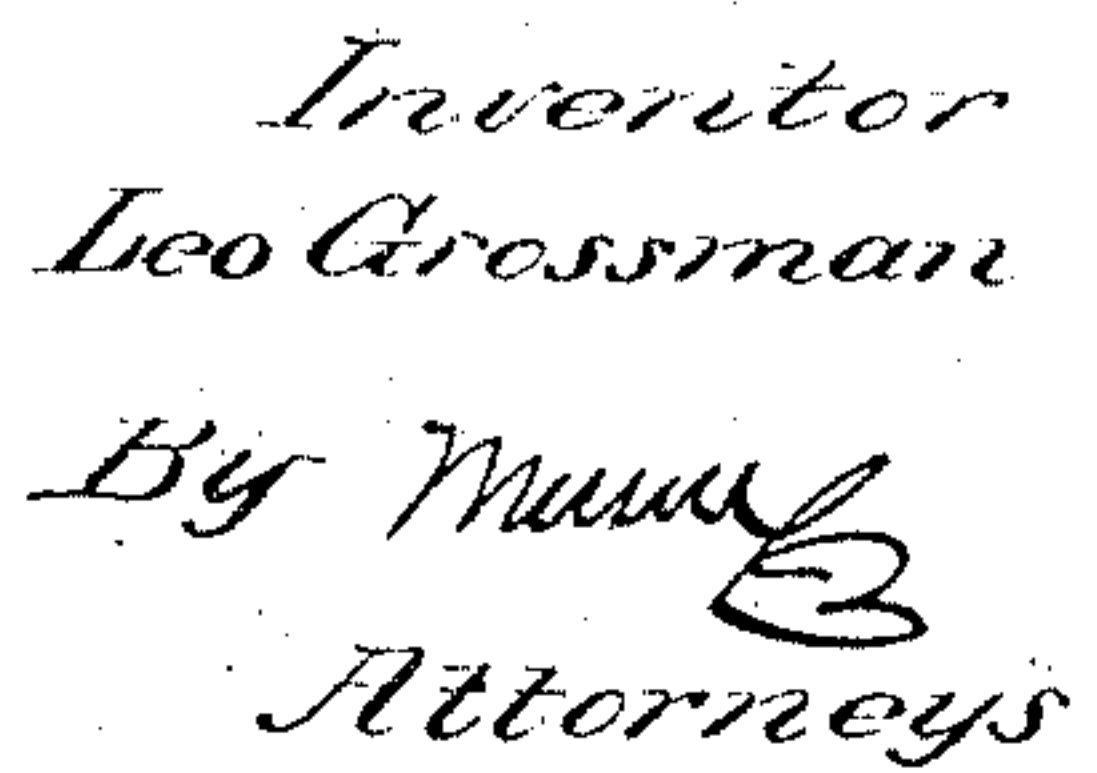 Inventor
Leo Grossman
By
Attorneys